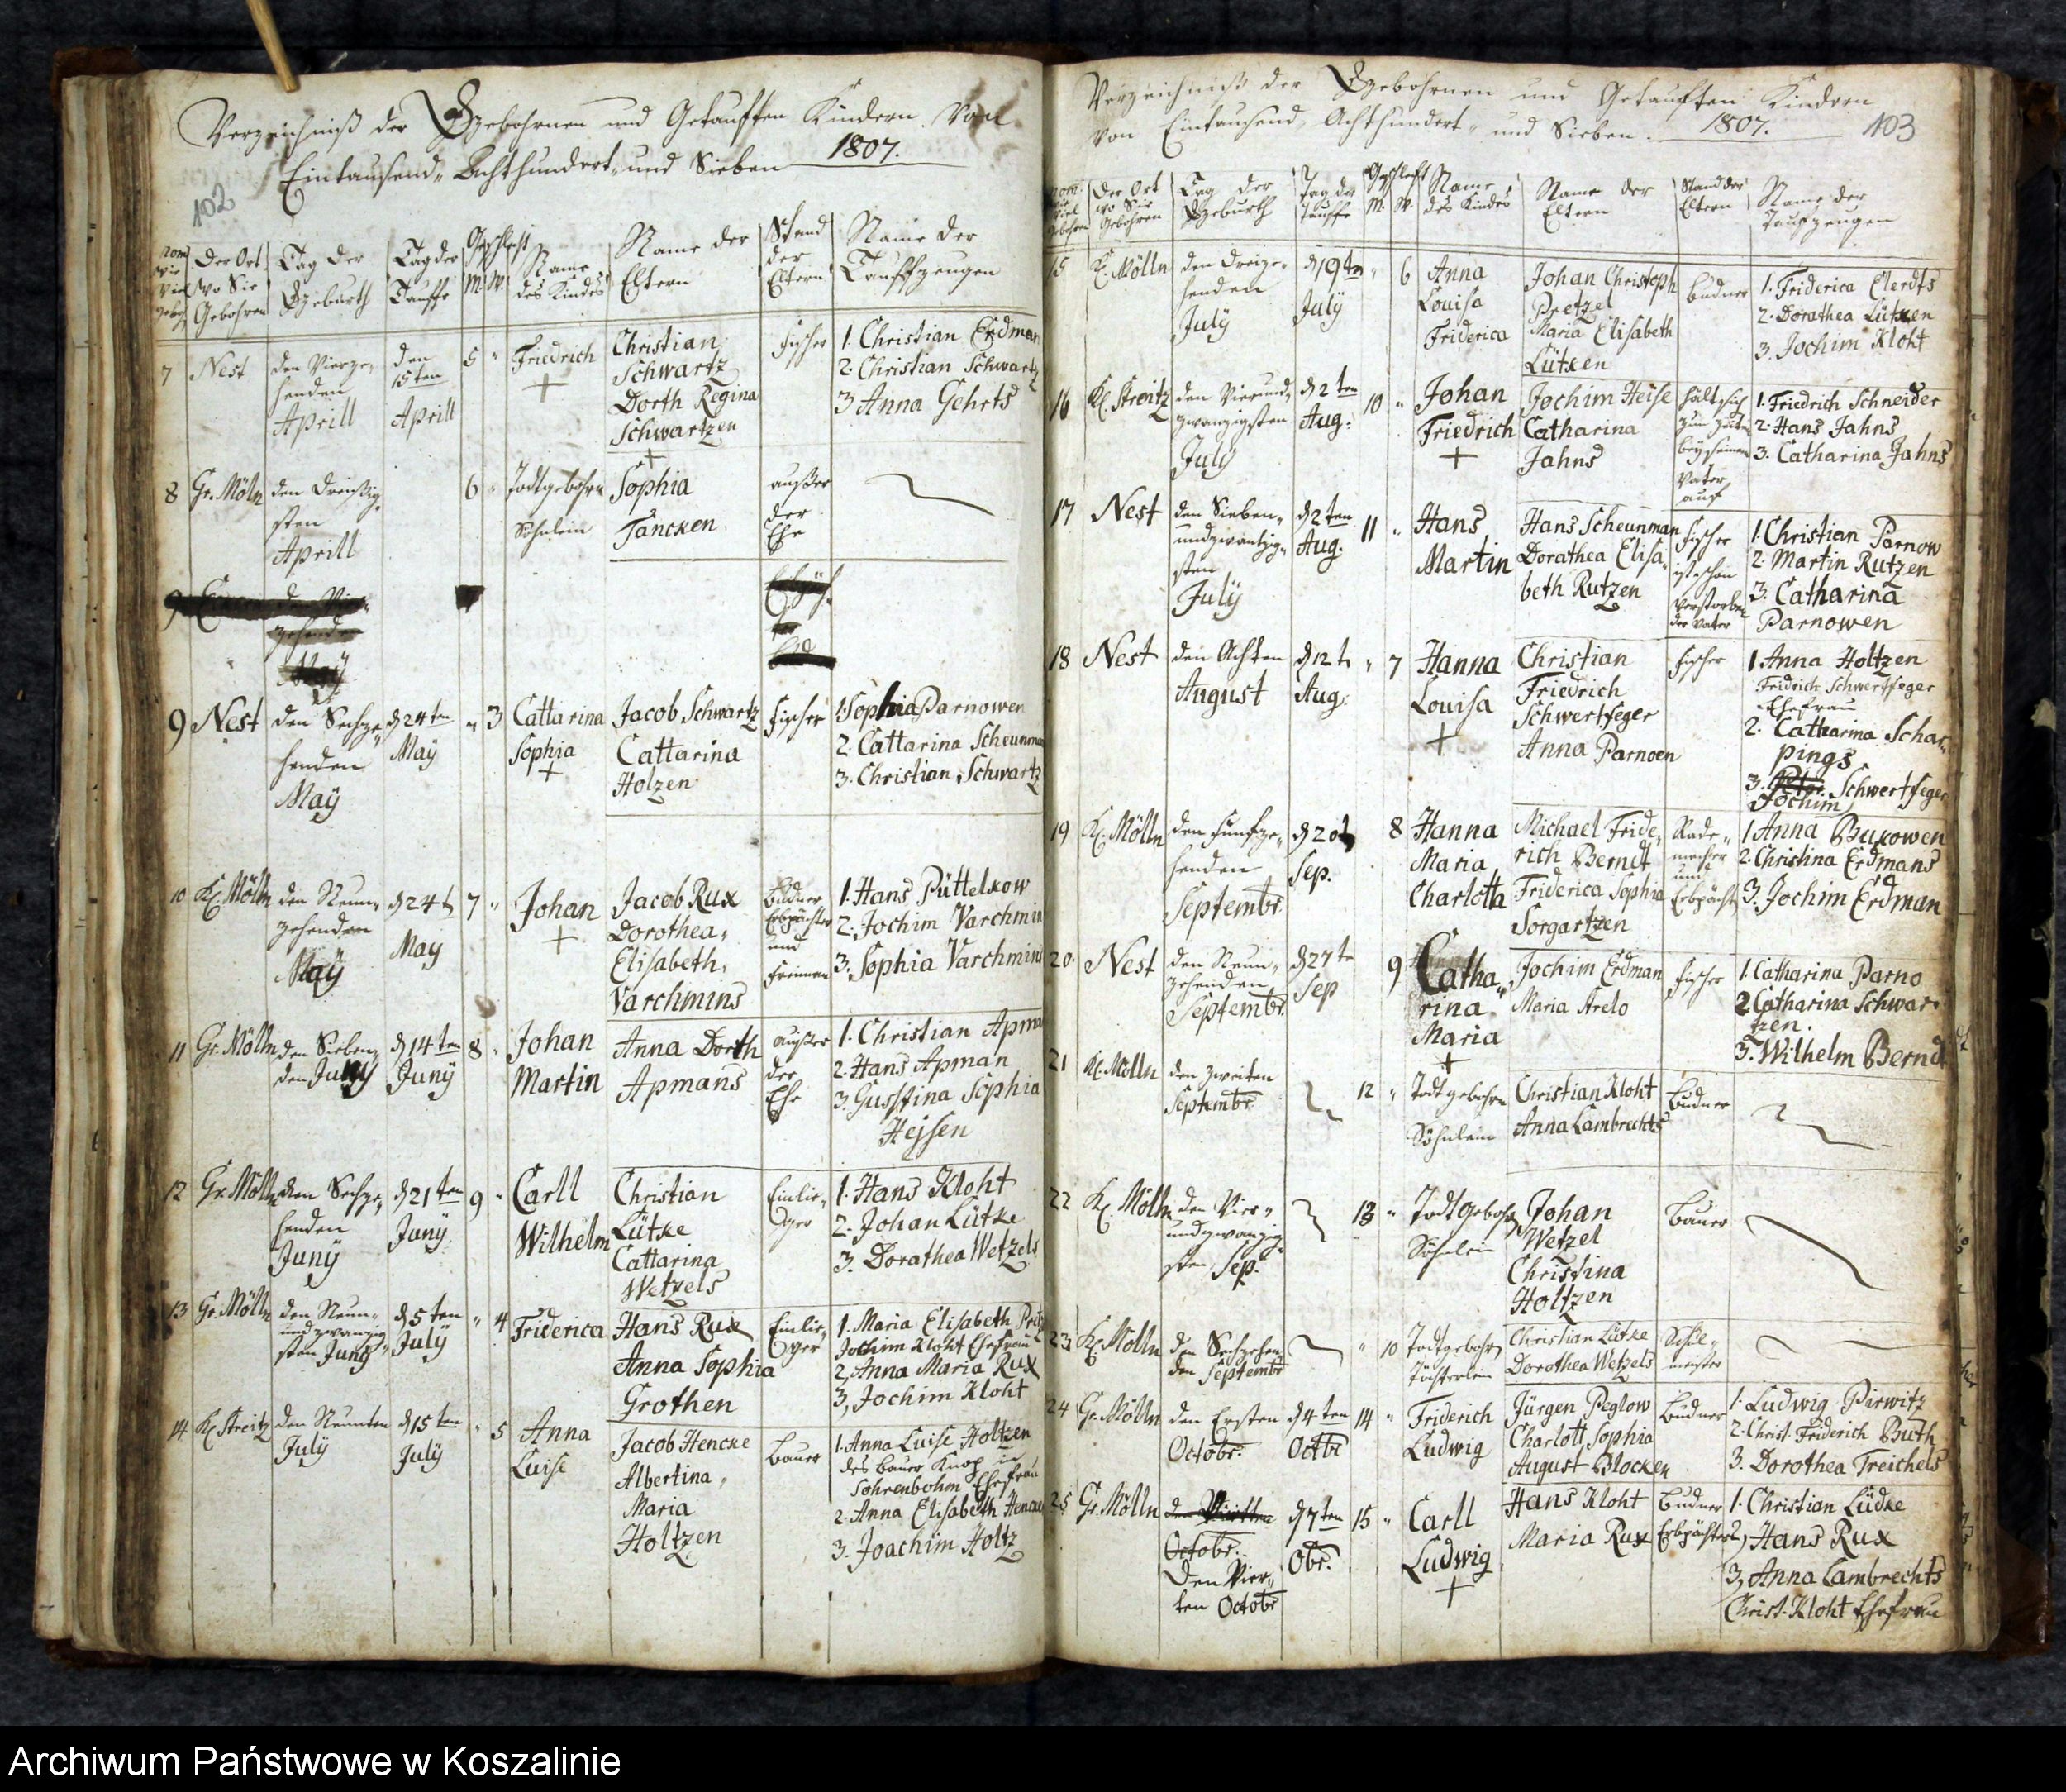 Verzeichniß der Gebohrnen und Getauften Kindern Von
Eintausend, Achthundert, und Sieben 1807.
102
Nom. wie viel gebohr.
Der Ort wo Sie Gebohren
Tag der Geburth
Tag der Tauffe
Geschlecht M. W.
Name des Kindes
Name der Eltern
Stand der Eltern
Name der Tauffzeugen
7 Nest
den Vierze-
henden
Aprill
den
15ten
Aprill
5 "
Friedrich
+
Christian
Schwartz
Dorth Regina
Schwartzen
Fischer
1. Christian Erdman
2. Christian Schwartz
3 Anna Gehrts
8 Gr. Möln
den Dreißig-
sten
Aprill
6 "
Todtgebohrn
Söhnlein
+
Sophia
Täncken
außer
der
Ehe
9 Nest
den Sechze-
henden
Maÿ
d 24ten
Maÿ
" 3
Cattarina
Sophia
+
Jacob Schwartz
Cattarina
Holzen
Fischer
1 Sophia Parnowen
2. Cattarina Scheunman
3. Christian Schwartz
10 Kl. Mölln
den Neun-
zehenden
Maÿ
d 24t
May
7 "
Johan
+
Jacob Rux
Dorothea,
Elisabeth,
Varchmins
Büdner
Erbpächter
und
Freiman
1. Hans Püttelkow
2. Jochim Varchmin
3. Sophia Varchmins
11 Gr. Mölln
den Sieben-
den Juny
d 14ten
Junÿ
8 "
Johan
Martin
Anna Dorth
Apmans
außer
der
Ehe
1. Christian Apman
2. Hans Apman
3. Gusstina Sophia
Hejsen
12 Gr. Mölln
den Sechze-
henden
Junÿ
d 21ten
Junÿ
9 "
Carll
Wilhelm
Christian
Lütke
Cattarina
Wetzels
Einlie-
ger
1. Hans Kloht
2. Johan Lütke
3. Dorathea Wetzels
13 Gr. Mölln
den Neun-
undzwanzig-
sten Juny
d 5ten
Julÿ
" 4
Friderica
Hans Rux
Anna Sophia
Grothen
Einlie-
ger
1. Maria Elisabeth
Jochim Kloht Ehefrau
2, Anna Maria Rux
3, Jochim Kloht
14 Kl Streitz
den Neunten
Julÿ
d 15ten
Julÿ
" 5
Anna
Luise
Jacob Hencke
Albertina,
Maria
Holtzen
Bauer
1. Anna Luise Holtzen
des Bauer Knop in
Sohrenbohm Ehefrau
2. Anna Elisabeth Hencke
3. Joachim Holtz
Verzeichniß der Gebohrnen und Getauften Kindern
von Eintausend, Achthundert, und Sieben. 1807. 103
Nom. wie viel gebohren
Der Ort wo Sie Gebohren
Tag der Geburth
Tag der Tauffe
Geschlecht M. W.
Name des Kindes
Name der Eltern
Stand der Eltern
Name der Taufzeugen
15 Kl. Mölln
den Dreize-
henden
Julÿ
d 19tn
Julÿ
" 6
Anna
Louisa
Friderica
Johan Christoph
Pretzel
Maria Elisabeth
Lütken
Büdner
1. Friderica Elerdts
2. Dorathea Lütken
3. Jochim Kloht
16 Kl. Streitz
den Vierund-
zwanzigsten
July
d 2ten
Aug:
10 "
Johan
Friedrich
+
Jochim Heise
Catharina
Jahns
hält sich
zur Zeit
beÿ seinem
Vater
auf
1. Friedrich Schneider
2. Hans Jahns
3. Catharina Jahns
17 Nest
den Sieben-
undzwantzig-
sten
Julÿ
d 2ten
Aug.
11 "
Hans
Martin
Hans Scheunman
Dorathea Elisa-
beth Rutzen
Fischer
ist schon
verstorben
der Vater
1. Christian Parnow
2. Martin Rutzen
3. Catharina
Parnowen
18 Nest
den Achten
August
d 12t
Aug.
" 7
Hanna
Louisa
+
Christian
Friedrich
Schwertfeger
Anna Parnoen
Fischer
1. Anna Holtzen
Fridrich Schwertfeger
Ehefrau
2. Catharina Schar-
pings
3. Schwertfeger
Jochim
19 Kl. Mölln
den Funfze-
henden
Septembr.
d 20t
Sep.
8
Hanna
Maria
Charlotta
Michael Fride-
rich Berndt
Friderica Sophia
Sorgartzen
Rade-
macher
und
Erbpächt.
1 Anna Bukowen
2. Christina Erdmans
3. Jochim Erdman
20. Nest
den Neun-
zehenden
Septembr.
d 27te
Sep
9
Catha-
rina
Maria
+
Jochim Erdman
Maria Strelo
Fischer
1. Catharina Parno
2 Catharina Schwar-
tzen.
3. Wilhelm Berndt
21 Kl. Mölln
den Zweiten
Septembr.
12 "
Todtgebohrn
Söhnlein
Christian Kloht
Anna Lambrechts
Büdner
22 Kl. Mölln
den Vier-
undzwanzig-
sten Sep.
13 "
Todtgebohrn
Söhnlein
Johan
Wetzel
Christina
Holtzen
Bauer
23 Kl. Mölln
den Sechzehen-
den Septembr
" 10
Todtgebohrn
Töchterlein
Christian Lütke
Dorothea Wetzels
Schul-
meister
24 Gr. Mölln
den Ersten
Octobr.
d 4ten
Octbr
14 "
Friderich
Ludwig
Jürgen Peglow
Charlott Sophia
August Blocken
Büdner
1. Ludwig Pirwitz
2. Christ. Friderich Buth
3. Dorothea Treichels
25 Gr. Mölln
den Vierten
Octobr.
Den Vier-
ten Octobr
d 7ten
Obr.
15 "
Carll
Ludwig
+
Hans Kloht
Maria Rux
Büdner
Erbpächter
1. Christian Lüdke
2, Hans Rux
3, Anna Lambrechts
Christ. Kloht Ehefrau
Archiwum Państwowe w Koszalinie